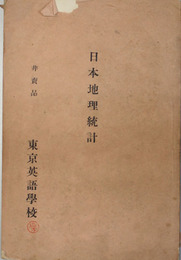 日本地理統計
非賣品
東京英語學校